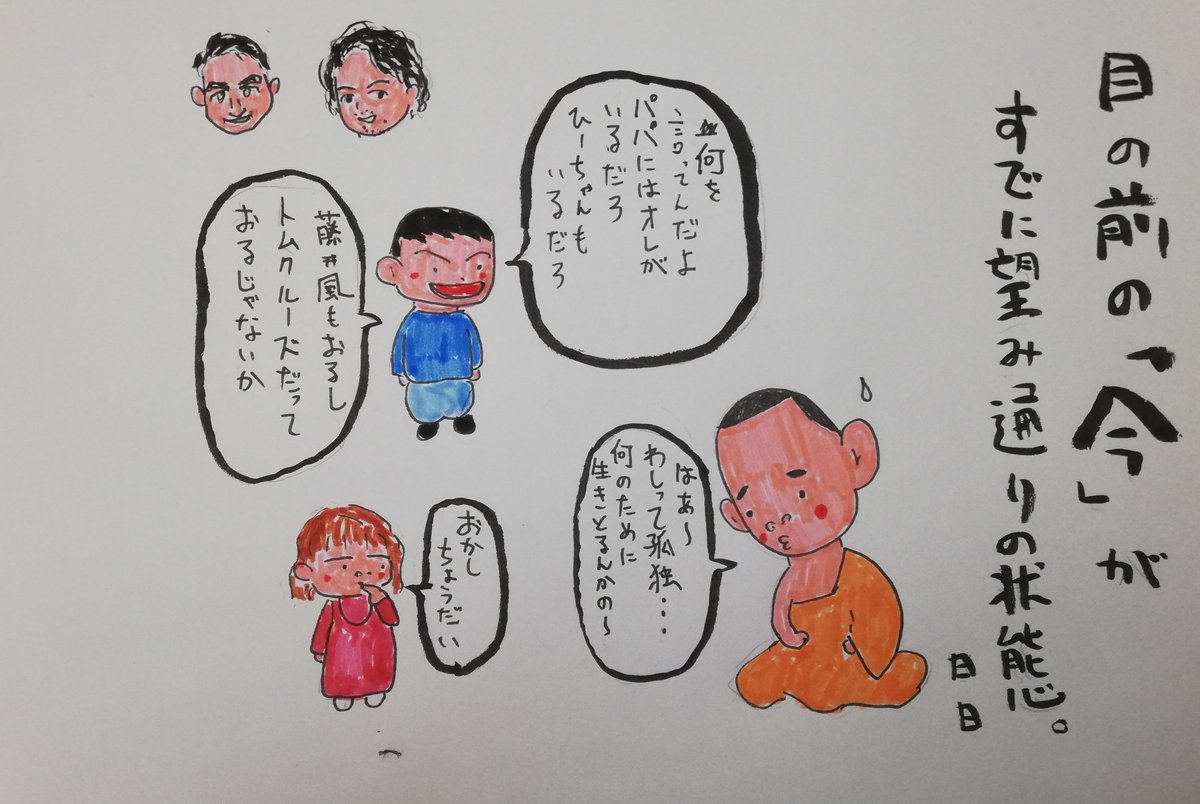 目の前の「今」が
すでに望み通りの状態。
日日
何を
言ってんだよ
パパにはオレが
いるだろ
ひーちゃんも
いるだろ
藤井風もおるし
トムクルーズだって
おるじゃないか
はあ〜
わしって孤独・・・
何のために
生きとるんかの〜
おかし
ちょうだい